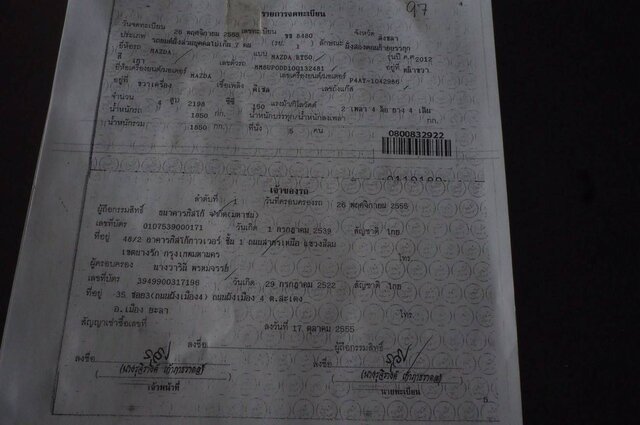 97
รายการจดทะเบียน
วันจดทะเบียน 26 พฤศจิกายน 2555 เลขทะเบียน บจ 8480 จังหวัด สงขลา
ประเภท รถยนต์นั่งส่วนบุคคลไม่เกิน 7 คน (รย. ) ลักษณะ
ยี่ห้อรถ MAZDA แบบ MAZDA BT50 รุ่นปี ค.ศ 2012
สี เทา เลขตัวรถ MM8UP0DD100132481 อยู่ที่
ยี่ห้อเครื่องยนต์/มอเตอร์ MAZDA เลขเครื่องยนต์/มอเตอร์ P4AT-1042986
อยู่ที่ ขวาเครื่อง เชื้อเพลิง ดีเซล เลขถังแก๊ส
จำนวน 4 สูบ 2198 ซีซี 150 แรงม้า/กิโลวัตต์ 2 เพลา 4 ล้อ ยาง 4 เส้น
น้ำหนักรถ 1850 กก. น้ำหนักบรรทุก/น้ำหนักลงเพลา กก.
น้ำหนักรวม 1850 กก. ที่นั่ง 5 คน
0800832922
เจ้าของรถ
ลำดับที่ 1 วันที่ครอบครองรถ 26 พฤศจิกายน 2555
ผู้ถือกรรมสิทธิ์ ธนาคารทิสโก้ จำกัด(มหาชน)
เลขที่บัตร 0107539000171 วันเกิด 1 กรกฎาคม 2539 สัญชาติ ไทย
ที่อยู่ 48/2 อาคารทิสโก้ทาวเวอร์ ชั้น 1 ถนนสาทรเหนือ แขวงสีลม
เขตบางรัก กรุงเทพมหานคร โทร.
ผู้ครอบครอง นางวารินี พรหมจรรย์
เลขที่บัตร 3949900317196 วันเกิด 29 กรกฎาคม 2522 สัญชาติ ไทย
ที่อยู่ 35 ซอย3(ถนนผังเมือง4) ถนนผังเมือง 4 ต.สะเตง
อ.เมือง ยะลา โทร
สัญญาเช่าซื้อเลขที่ ลงวันที่ 17 ตุลาคม 2555
ลงชื่อ ผู้ถือกรรมสิทธิ์
ลงชื่อ ลงชื่อ
เจ้าหน้าที่ นายทะเบียน